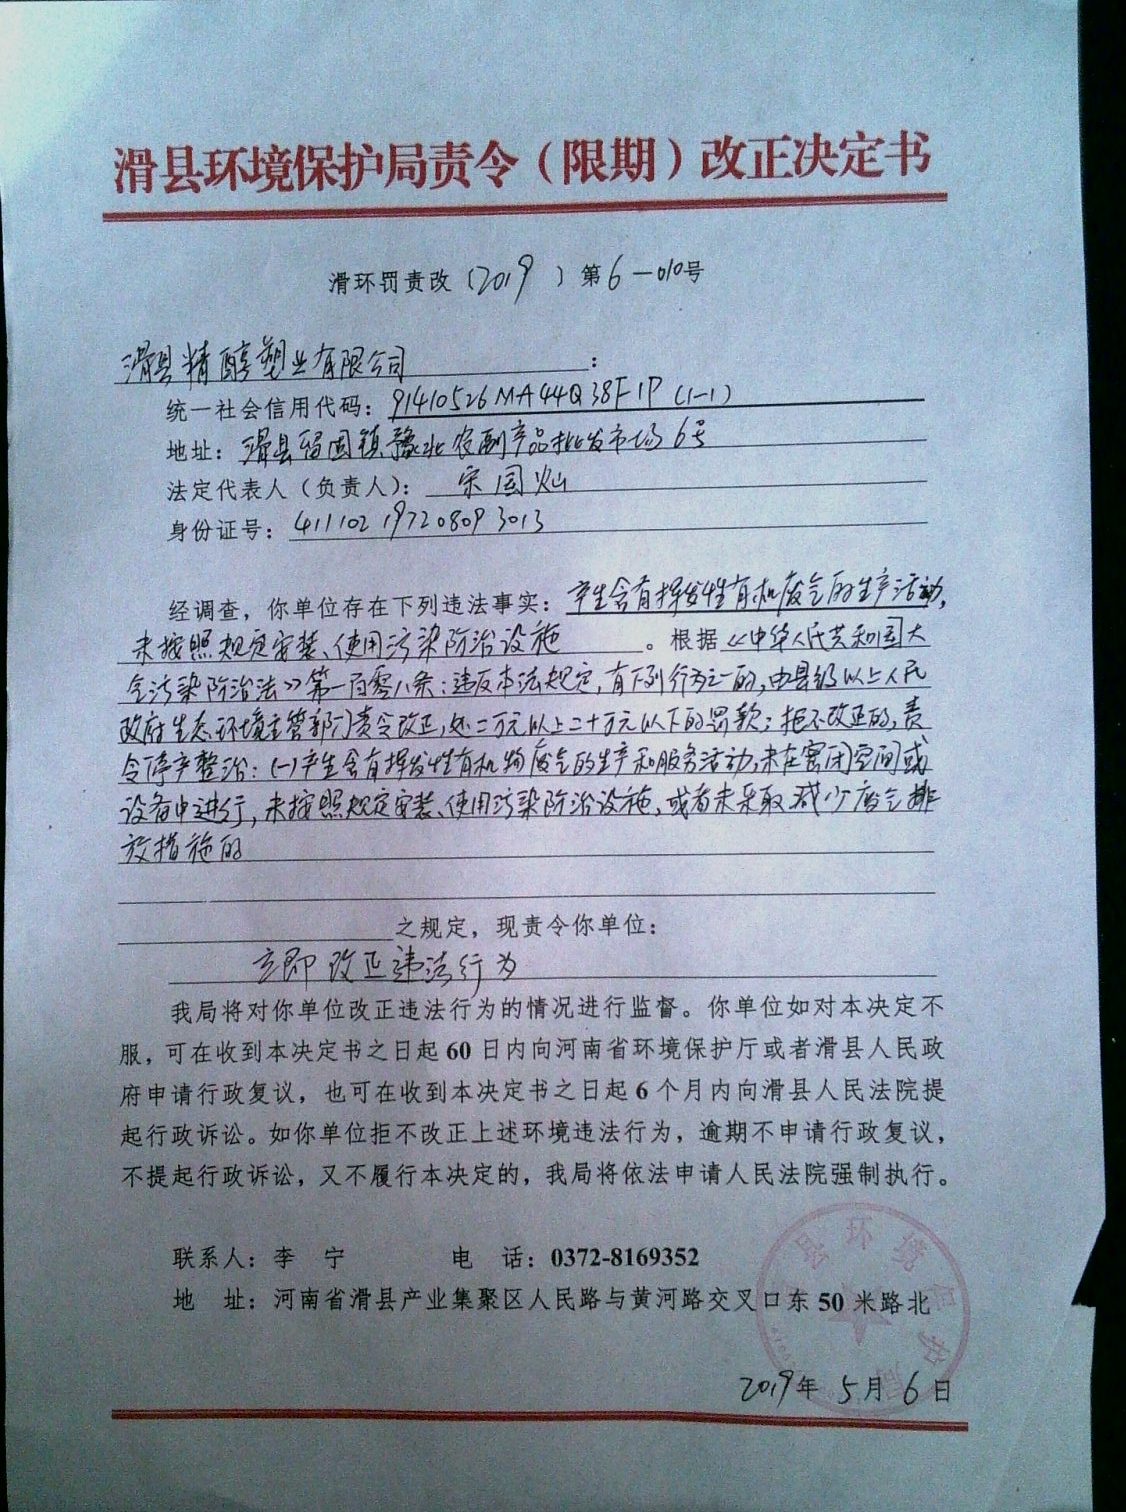 滑县环境保护局责令（限期）改正决定书
滑环罚责改（2019）第6-010号
滑县精醇塑业有限公司：
统一社会信用代码：91410526MA44Q38F1P（1-1）
地址：滑县留固镇豫北农副产品批发市场6号
法定代表人（负责人）：宋国灿
身份证号：411102197208093013
经调查，你单位存在下列违法事实：产生含有挥发性有机废气的生产活动，
未按照规定安装、使用污染防治设施。根据《中华人民共和国大
气污染防治法》第一百零八条：违反本法规定，有下列行为之一的，由县级以上人民
政府生态环境主管部门责令改正，处二万元以上二十万元以下的罚款；拒不改正的，责
令停产整治：（一）产生含有挥发性有机物废气的生产和服务活动，未在密闭空间或
设备中进行，未按照规定安装、使用污染防治设施，或者未采取减少废气排
放措施的
之规定，现责令你单位：
立即改正违法行为
我局将对你单位改正违法行为的情况进行监督。你单位如对本决定不
服，可在收到本决定书之日起60日内向河南省环境保护厅或者滑县人民政
府申请行政复议，也可在收到本决定书之日起6个月内向滑县人民法院提
起行政诉讼。如你单位拒不改正上述环境违法行为，逾期不申请行政复议，
不提起行政诉讼，又不履行本决定的，我局将依法申请人民法院强制执行。
联系人：李 宁 电 话：0372-8169352
地 址：河南省滑县产业集聚区人民路与黄河路交叉口东50米路北
2019年5月6日